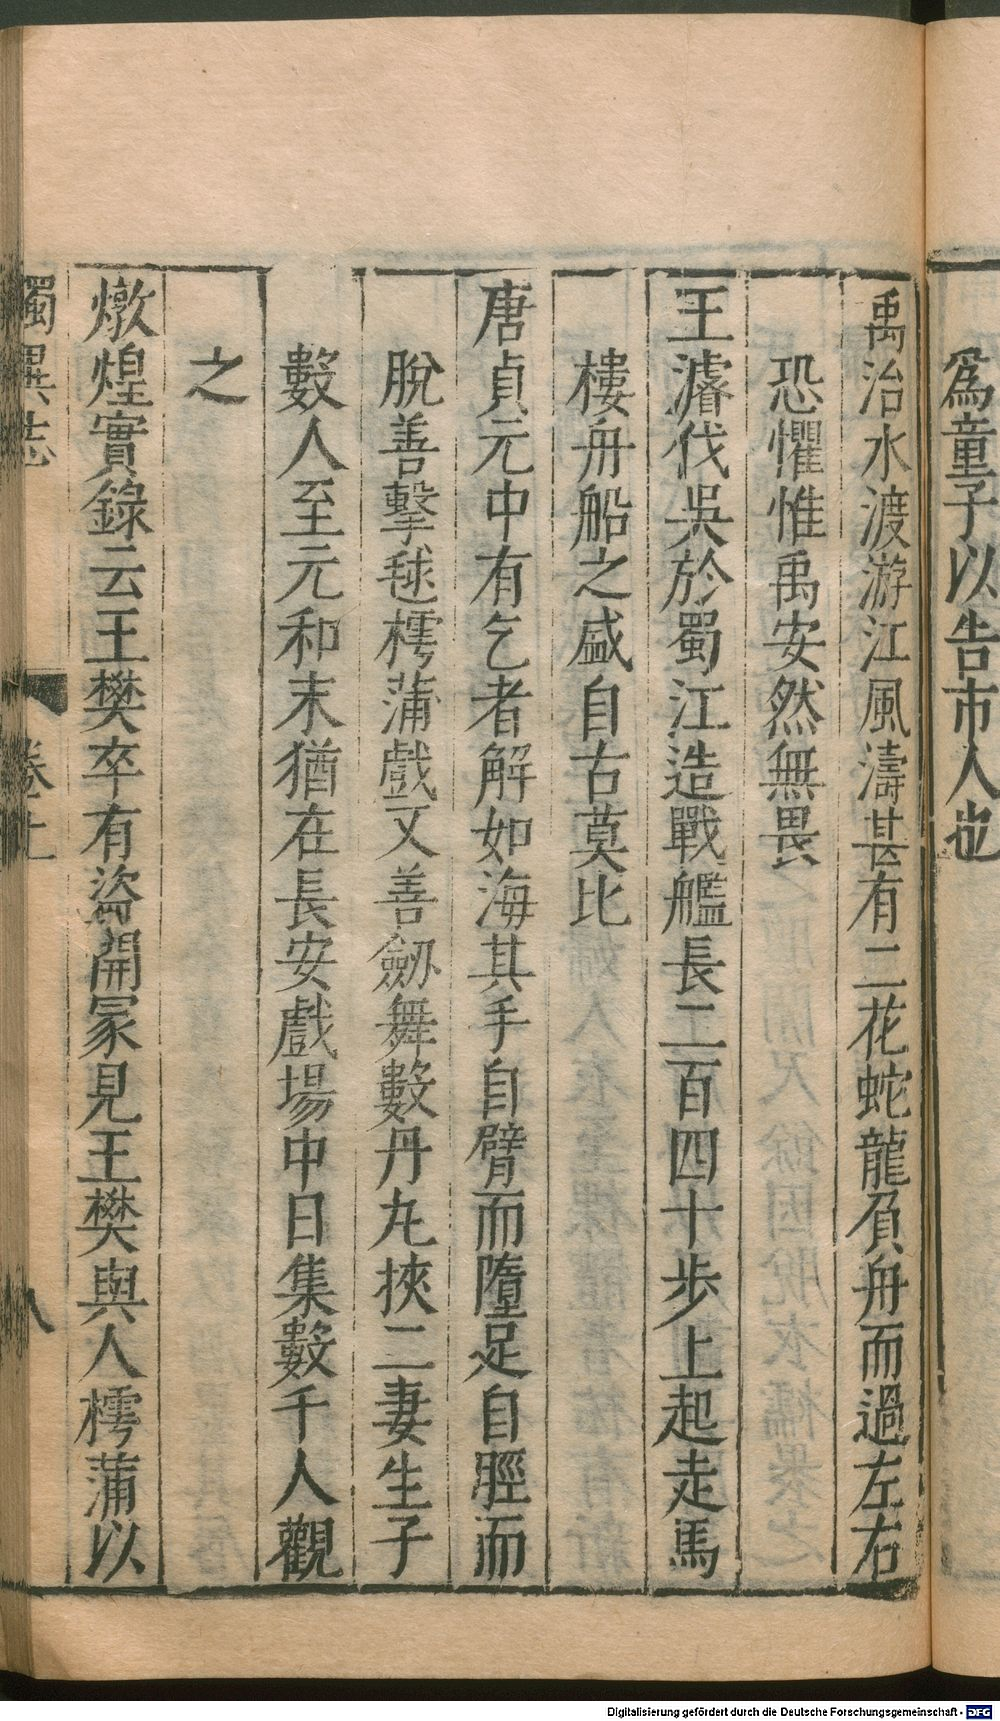 爲童子以告市人也
禹治水渡游江風濤甚有二花蛇龍負舟而過左右
恐懼惟禹安然無畏
王濬伐吳於蜀江造戰艦長二百四十步上起走馬
樓舟船之盛自古莫比
唐貞元中有乞者解如海其手自臂而墮足自脛而
脫善擊毬樗蒲戲又善劒舞數丹丸挾二妻生子
數人至元和末猶在長安戲場中日集數千人觀
之
燉煌實錄云王樊卒有盜開冢見王樊與人樗蒲以
獨異志 卷上 八
Digitalisierung gefördert durch die Deutsche Forschungsgemeinschaft - DFG